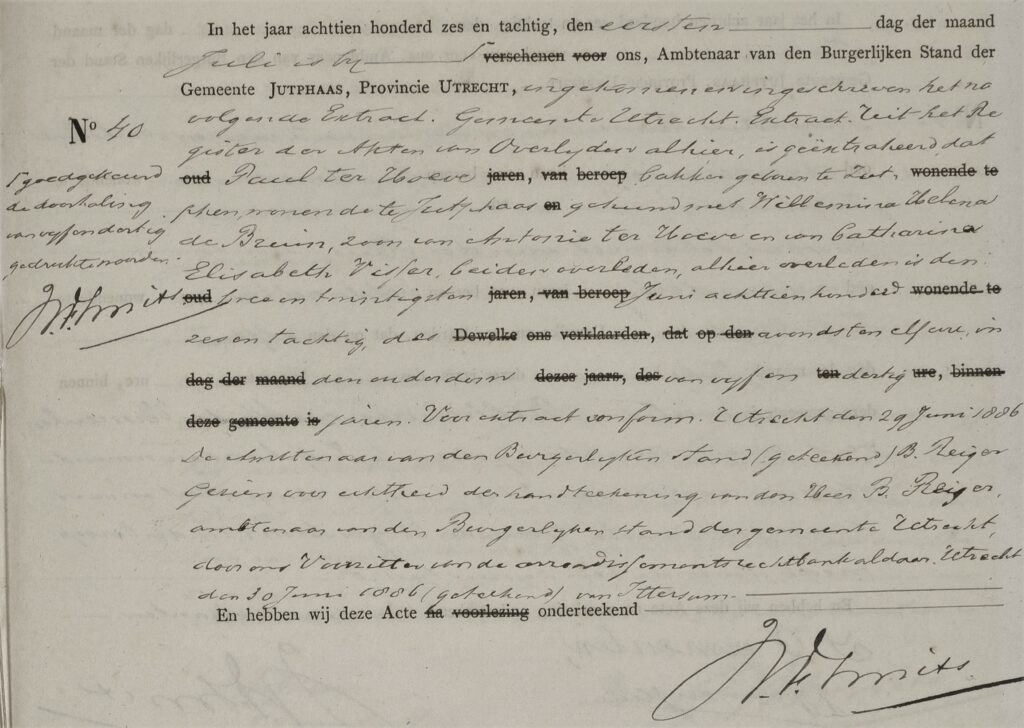 In het jaar achttien honderd zes en tachtig, den eersten dag der maand
Juli is bij verschenen voor ons, Ambtenaar van den Burgerlijken Stand der
Gemeente JUTPHAAS, Provincie UTRECHT, ingekomen en ingeschreven het na
No 40
volgende Extract. Gemeente Utrecht. Extract Uit het Re
gister der Akten van Overlijden alhier, is geëxtraheerd, dat
oud Paul ter Hoeve jaren, van beroep bakker geboren te Zut- wonende te
phen, wonende te Jutphaas en gehuwd met Willemina Helena
de Bruin, zoon van Antonie ter Hoeve en van Catharina
Elisabeth Visser, beiden overleden, alhier overleden is den
oud twee en twintigsten jaren, van beroep Juni achttienhonderd wonende te
zes en tachtig, des Dewelke ons verklaarden, dat op den avonds ten elf ure, in
dag der maand den ouderdom dezes jaars, des van vijf en ten dertig ure, binnen
deze gemeente is jaren. Voor extract conform. Utrecht den 29 Juni 1886
De Ambtenaar van den Burgerlijken stand (geteekend) B. Reiger
Gezien voor echtheid der handteekening van den Heer B. Reiger,
ambtenaar van den Burgerlijken stand der gemeente Utrecht,
door ons Voorzitter van de arrondissements rechtbank aldaar. Utrecht
den 30 Juni 1886 (geteekend) van Ittersum
En hebben wij deze Acte na voorlezing onderteekend
goedgekeurd
de doorhaling
van vijf en dertig
gedrukte woorden.